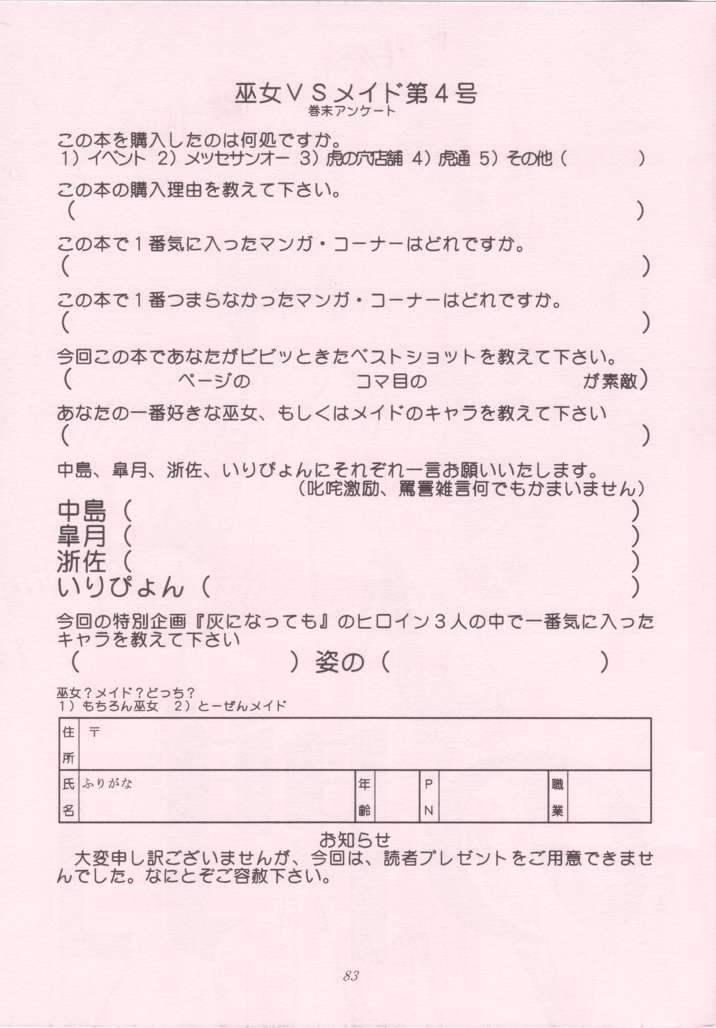 巫女ＶＳメイド第４号
巻末アンケート
この本を購入したのは何処ですか。
１）イベント ２）メッセサンオー ３）虎の穴店舗 ４）虎通 ５）その他（　　　　）
この本の購入理由を教えて下さい。
（　　　　　　　　　　　　　　　　）
この本で１番気に入ったマンガ・コーナーはどれですか。
（　　　　　　　　　　　　　　　　）
この本で１番つまらなかったマンガ・コーナーはどれですか。
（　　　　　　　　　　　　　　　　）
今回この本であなたがビビッときたベストショットを教えて下さい。
（　　　　　ページの　　　　　コマ目の　　　　　　　が素敵）
あなたの一番好きな巫女、もしくはメイドのキャラを教えて下さい
（　　　　　　　　　　　　　　　　）
中島、皐月、浙佐、いりぴょんにそれぞれ一言お願いいたします。
（叱咤激励、罵詈雑言何でもかまいません）
中島（　　　　　　　　　　　　　　）
皐月（　　　　　　　　　　　　　　）
浙佐（　　　　　　　　　　　　　　）
いりぴょん（　　　　　　　　　　　）
今回の特別企画『灰になっても』のヒロイン３人の中で一番気に入った
キャラを教えて下さい
（　　　　　　　）姿の（　　　　　　　）
巫女？メイド？どっち？
１）もちろん巫女　２）とーぜんメイド
住所 〒
氏名 ふりがな 年齢 ＰＮ 職業
お知らせ
大変申し訳ございませんが、今回は、読者プレゼントをご用意できませ
んでした。なにとぞご容赦下さい。
83